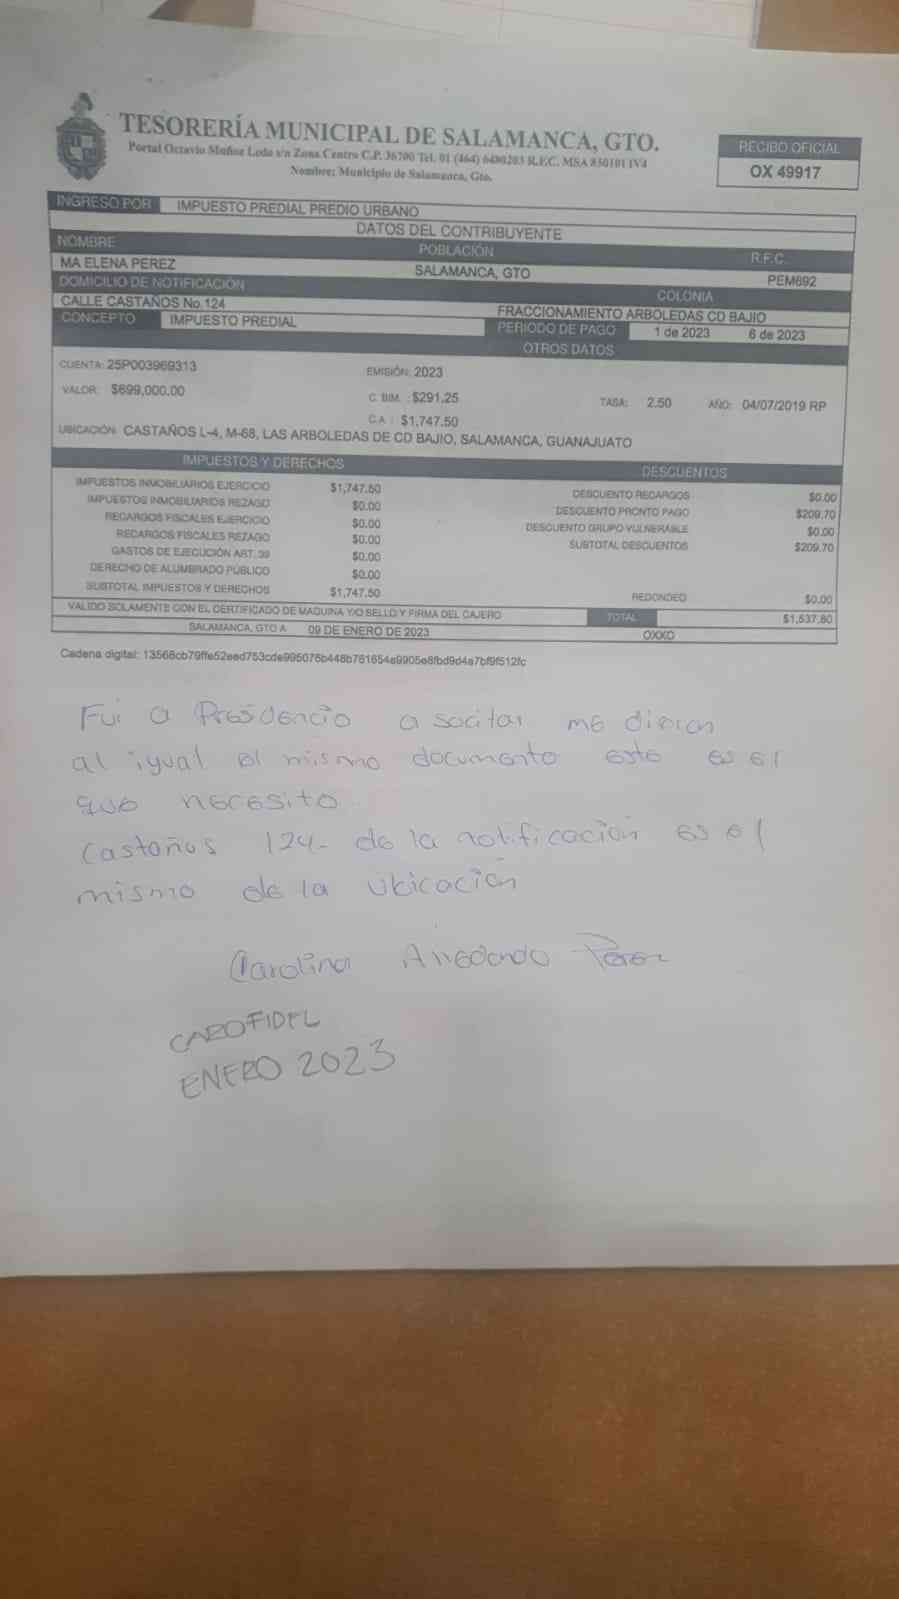 TESORERÍA MUNICIPAL DE SALAMANCA, GTO.
Portal Octavio Muñoz Ledo s/n Zona Centro C.P. 36700 Tel. 01 (464) 6480203 R.F.C. MSA 850101 IV4
Nombre: Municipio de Salamanca, Gto.
RECIBO OFICIAL
OX 49917
INGRESO POR IMPUESTO PREDIAL PREDIO URBANO
DATOS DEL CONTRIBUYENTE
NOMBRE POBLACIÓN R.F.C.
MA ELENA PEREZ SALAMANCA, GTO PEM692
DOMICILIO DE NOTIFICACIÓN COLONIA
CALLE CASTAÑOS No.124 FRACCIONAMIENTO ARBOLEDAS CD BAJIO
CONCEPTO IMPUESTO PREDIAL PERIODO DE PAGO 1 de 2023 6 de 2023
OTROS DATOS
CUENTA: 25P003969313 EMISIÓN: 2023
VALOR: $699,000.00 C. BIM. : $291.25 TASA: 2.50 AÑO: 04/07/2019 RP
C.A : $1,747.50
UBICACIÓN: CASTAÑOS L-4, M-68, LAS ARBOLEDAS DE CD BAJIO, SALAMANCA, GUANAJUATO
IMPUESTOS Y DERECHOS DESCUENTOS
IMPUESTOS INMOBILIARIOS EJERCICIO $1,747.50 DESCUENTO RECARGOS $0.00
IMPUESTOS INMOBILIARIOS REZAGO $0.00 DESCUENTO PRONTO PAGO $209.70
RECARGOS FISCALES EJERCICIO $0.00 DESCUENTO GRUPO VULNERABLE $0.00
RECARGOS FISCALES REZAGO $0.00 SUBTOTAL DESCUENTOS $209.70
GASTOS DE EJECUCIÓN ART. 39 $0.00
DERECHO DE ALUMBRADO PÚBLICO $0.00
SUBTOTAL IMPUESTOS Y DERECHOS $1,747.50 REDONDEO $0.00
VALIDO SOLAMENTE CON EL CERTIFICADO DE MAQUINA Y/O SELLO Y FIRMA DEL CAJERO TOTAL $1,537.80
SALAMANCA, GTO A 09 DE ENERO DE 2023 OXXO
Cadena digital:
Fui a Presidencia a socitar me dieron
al igual el mismo documento este es el
que necesito
Castaños 124- de la notificación es el
mismo de la ubicación
Carolina Arredondo Perez
CAROFIDEL
ENERO 2023